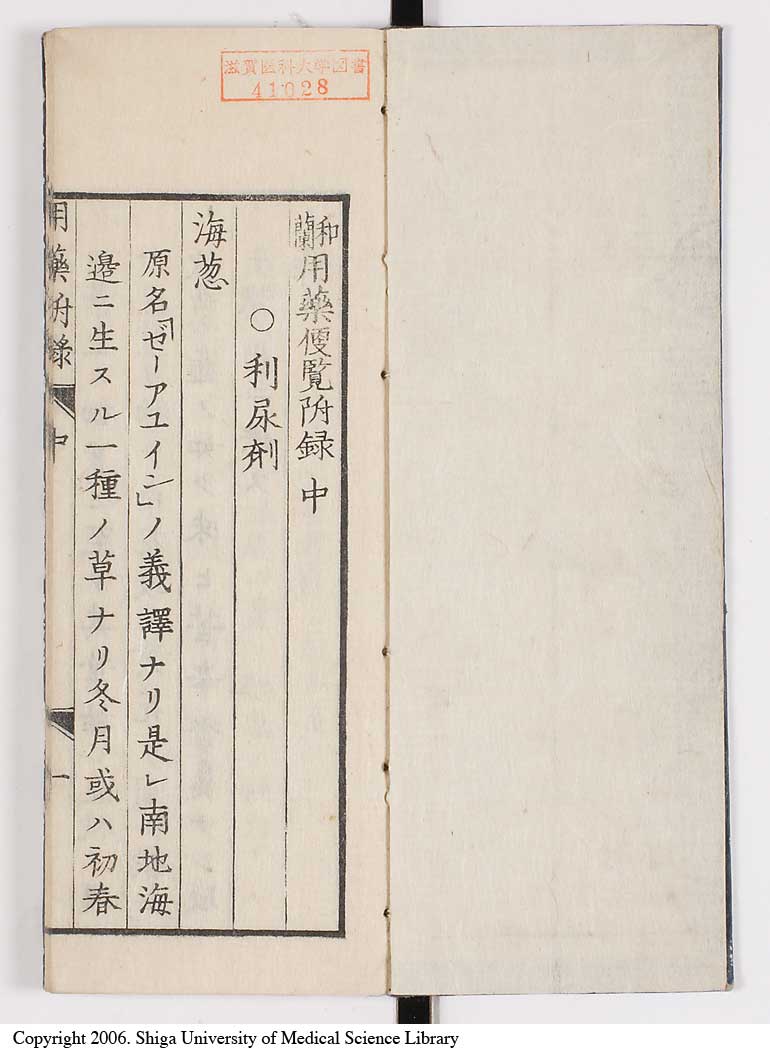 滋賀医科大学図書
41028
和蘭用藥便覧附録 中
○利尿剤
海葱
原名「ゼーアユイン」ノ義譯ナリ是レ南地海
邉ニ生スル一種ノ草ナリ冬月或ハ初春
用藥附録 中 一
Copyright 2006. Shiga University of Medical Science Library